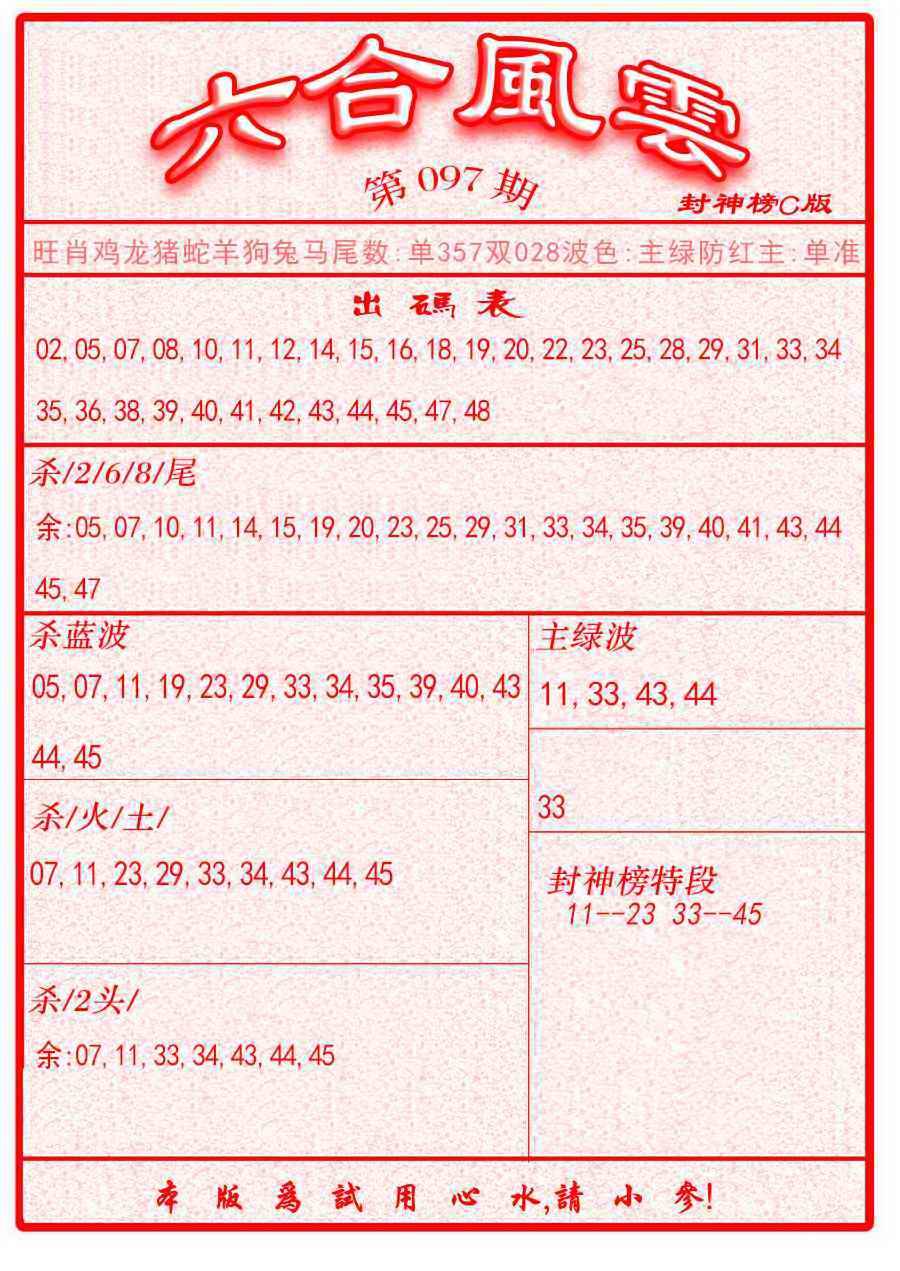 六合風雲
第097期
封神榜C版
旺肖鸡龙猪蛇羊狗兔马尾数:单357双028波色:主绿防红主:单准
出碼表
02,05,07,08,10,11,12,14,15,16,18,19,20,22,23,25,28,29,31,33,34
35,36,38,39,40,41,42,43,44,45,47,48
杀/2/6/8/尾
余:05,07,10,11,14,15,19,20,23,25,29,31,33,34,35,39,40,41,43,44
45,47
杀蓝波
05,07,11,19,23,29,33,34,35,39,40,43
44,45
主绿波
11,33,43,44
33
杀/火/土/
07,11,23,29,33,34,43,44,45
封神榜特段
11--23 33--45
杀/2头/
余:07,11,33,34,43,44,45
本版爲試用心水,請小參!